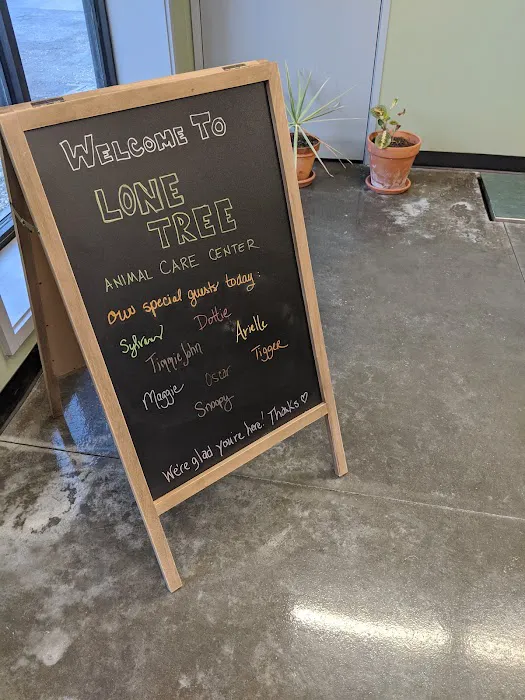 WELCOME TO
LONE
TREE
ANIMAL CARE CENTER
our special guests today:
Sylvan Dottie Arielle
TimmieJohn Tigger
Maggie Oscar
Snoopy
We're glad you're here! Thanks ♡